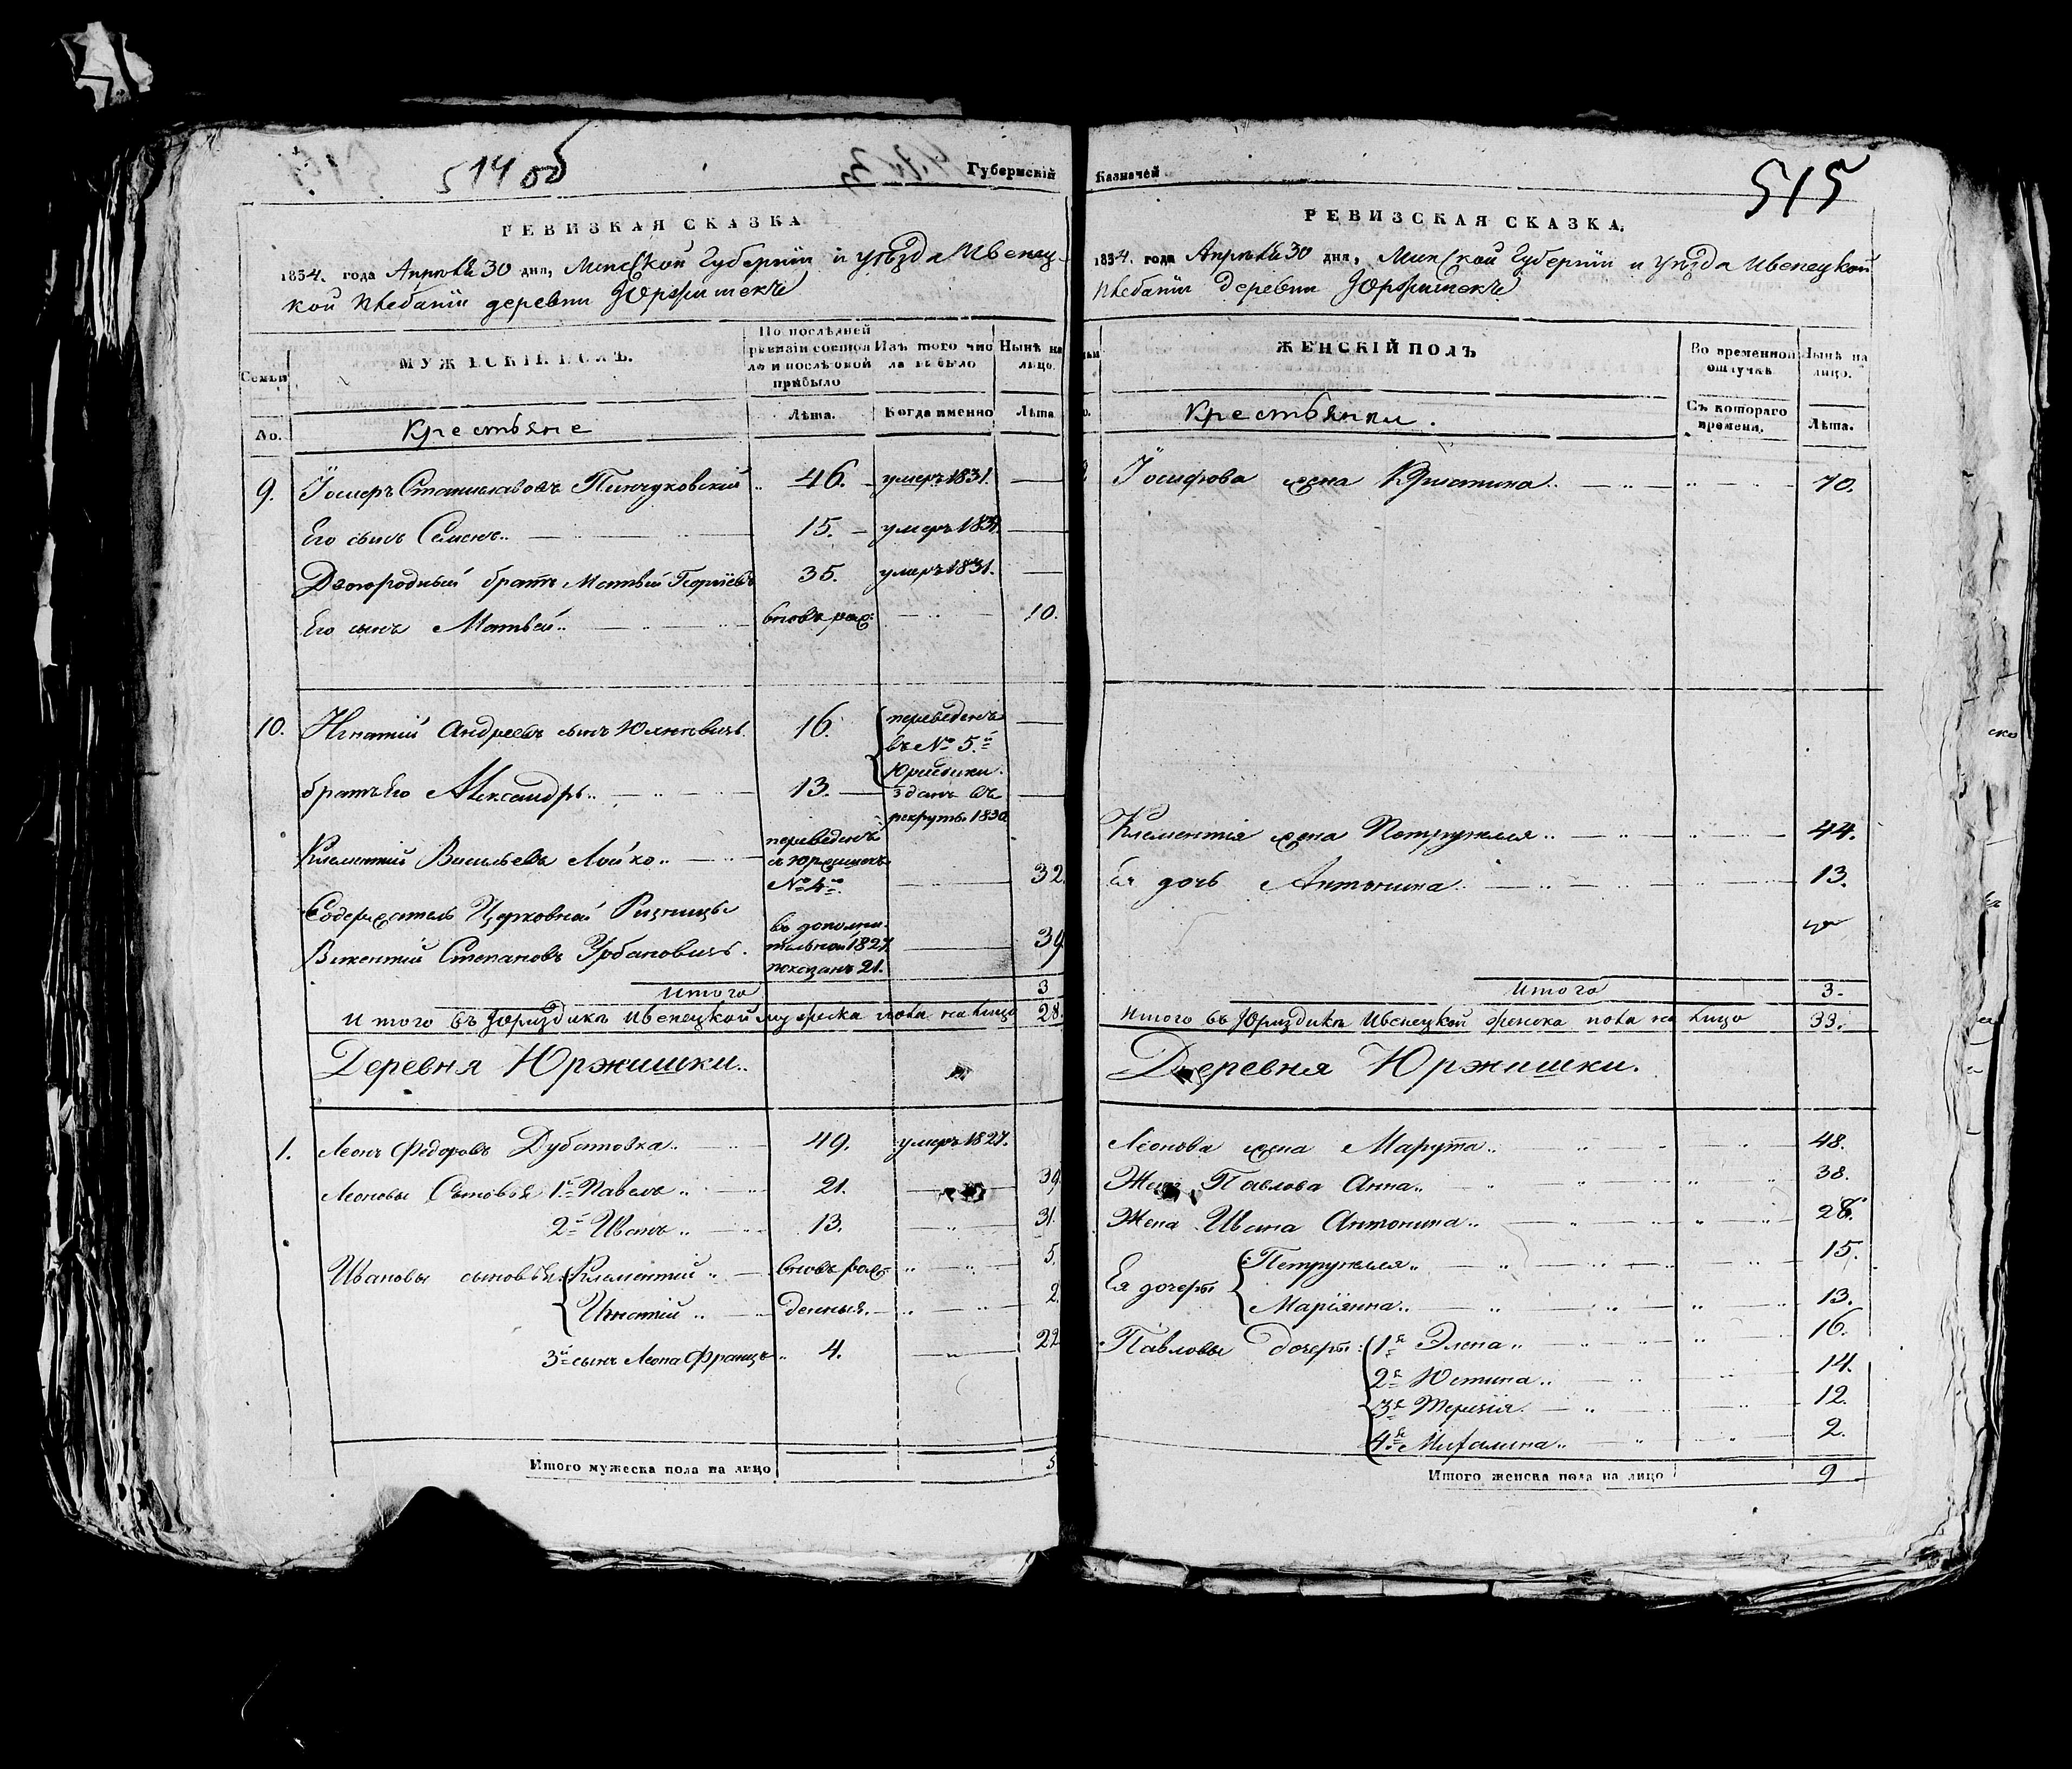 514 об
Губернскій
РЕВИЗКАЯ СКАЗКА
1834. года Апрѣля 30 дня, Минской Губерніи и уѣзда Ивенец-
кой Плебаніи деревни Юржишекъ
Семьи
МУЖЕСКІЙ ПОЛЪ.
По послѣдней ревизіи состояло и послѣ оной прибыло
Изъ того числа выбыло
Нынѣ на лицо.
No.
Крестьяне
Лѣта.
Когда именно
Лѣта
9. Іосифъ Станиславовъ Пинчуковскій 46. умеръ 1831.
Его сынъ Семенъ 15. умеръ
Двоюродный братъ Матвѣй 35. умеръ 1831.
Его сынъ Матвѣй вновь рож: 10.
10. Игнатій Андреевъ сынъ Юхновичъ 16. переведенъ
въ No 5.й
братъ Его Александръ 13. зданъ въ
рекруты 1830
Клементій Васильевъ Лойко переведенъ
съ Юржишекъ
No 4го 32.
Содержатель Церковной Ризницы
Викентій Степановъ Урбановичъ. въ дополни-
тельной 1827
показанъ 21. 39
Итого 3
Итого въ Юриздикѣ Ивенецкой мужеска пола на лицо 28.
Деревня Юржишки.
1. Леонъ Федоровъ Дубатовка 49. умеръ 1827.
Леоновы Сыновья 1й Павелъ 21. 39
2й Иванъ 13. 31.
Ивановы сыновья: Клементій вновь рож- 5.
Игнатій денныя. 2.
3й сынъ Леона Францъ 4. 22
Итого мужеска пола на лицо 5
Казначей
515
РЕВИЗСКАЯ СКАЗКА.
1834. года Апрѣля 30 дня, Минской Губерніи и уѣзда Ивенецкой
Плебаніи деревни Юржишекъ
ЖЕНСКІЙ ПОЛЪ
Во временной отлучкѣ
Нынѣ на лицо.
Крестьянки.
Съ котораго времени.
Лѣта.
Іосифова жена Кристина 70.
Клементія жена Петрунеля 44.
Ея дочь Антонина 13.
Итого 3.
Итого въ Юриздикѣ Ивенецкой женска пола на лицо 33.
Деревня Юржишки.
Леонова жена Марута 48.
Жена Павлова Анна 38.
Жена Ивана Антонина 28.
Ея дочери Петрунеля 15.
Маріянна 13.
Павловы дочери: 1я Элена 16.
2я Юстина 14.
3я Терезія 12.
4я Михалина 2.
Итого женска пола на лицо 9